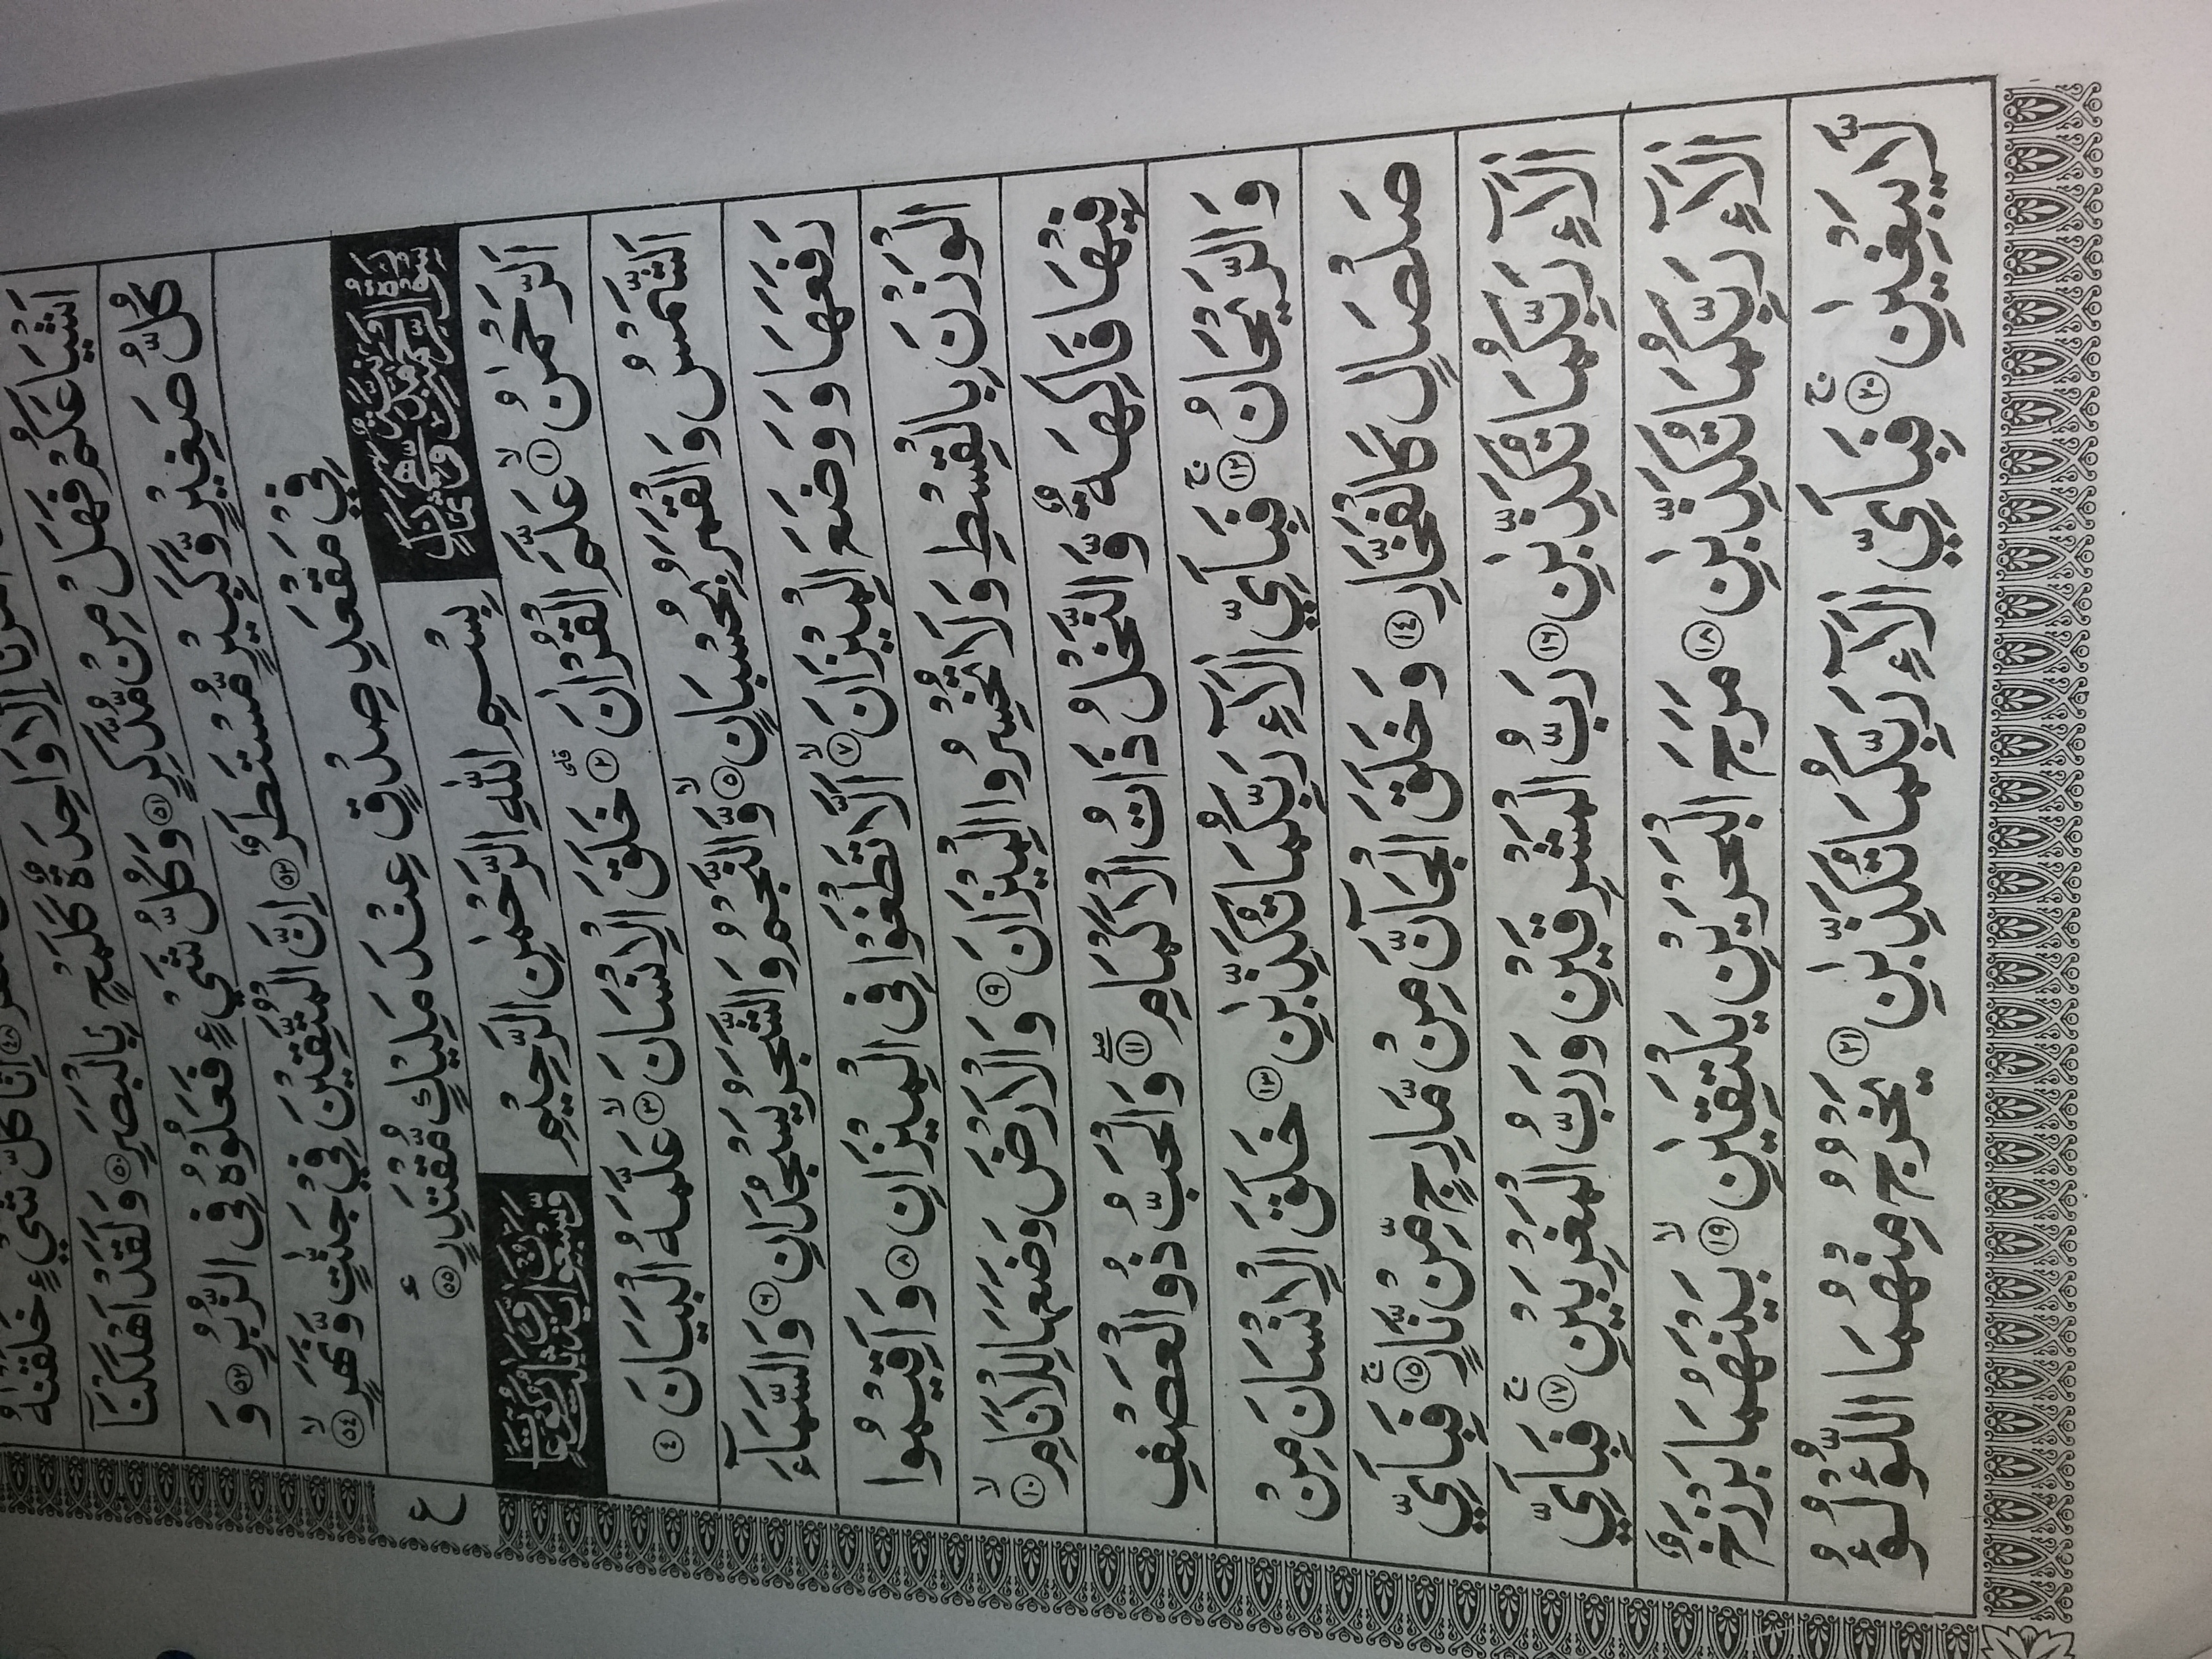 اِنَّا كُلَّ شَيْءٍ خَلَقْنٰهُ
اِلَّا وَاحِدَةٌ كَلَمْحٍۭ بِالْبَصَرِ ﴿٥٠﴾ وَلَقَدْ اَهْلَكْنَآ
اَشْيَاعَكُمْ فَهَلْ مِنْ مُّدَّكِرٍ ﴿٥١﴾ وَكُلُّ شَيْءٍ فَعَلُوْهُ فِى الزُّبُرِ ﴿٥٢﴾ وَ
كُلُّ صَغِيْرٍ وَّكَبِيْرٍ مُّسْتَطَرٌ ﴿٥٣﴾ اِنَّ الْمُتَّقِيْنَ فِيْ جَنّٰتٍ وَّنَهَرٍ ﴿٥٤﴾ۙ
فِيْ مَقْعَدِ صِدْقٍ عِنْدَ مَلِيْكٍ مُّقْتَدِرٍ ﴿٥٥﴾
ع
سُوْرَةُ الرَّحْمٰنِ مَدَنِيَّةٌ وَّهِيَ ثَمَانٍ
بِسْمِ اللّٰهِ الرَّحْمٰنِ الرَّحِيْمِ
وَّسَبْعُوْنَ اٰيَةً وَّثَلٰثُ رُكُوْعَاتٍ
اَلرَّحْمٰنُ ﴿١﴾ۙ عَلَّمَ الْقُرْاٰنَ ﴿٢﴾ۗ خَلَقَ الْاِنْسَانَ ﴿٣﴾ۙ عَلَّمَهُ الْبَيَانَ ﴿٤﴾
اَلشَّمْسُ وَالْقَمَرُ بِحُسْبَانٍ ﴿٥﴾ۙ وَّالنَّجْمُ وَالشَّجَرُ يَسْجُدَانِ ﴿٦﴾ وَالسَّمَآءَ
رَفَعَهَا وَوَضَعَ الْمِيْزَانَ ﴿٧﴾ۙ اَلَّا تَطْغَوْا فِى الْمِيْزَانِ ﴿٨﴾ وَاَقِيْمُوا
الْوَزْنَ بِالْقِسْطِ وَلَا تُخْسِرُوا الْمِيْزَانَ ﴿٩﴾ وَالْاَرْضَ وَضَعَهَا لِلْاَنَامِ ﴿١٠﴾ۙ
فِيْهَا فَاكِهَةٌ وَّالنَّخْلُ ذَاتُ الْاَكْمَامِ ﴿١١﴾ۖ وَالْحَبُّ ذُو الْعَصْفِ
وَالرَّيْحَانُ ﴿١٢﴾ۚ فَبِاَيِّ اٰلَآءِ رَبِّكُمَا تُكَذِّبٰنِ ﴿١٣﴾ خَلَقَ الْاِنْسَانَ مِنْ
صَلْصَالٍ كَالْفَخَّارِ ﴿١٤﴾ وَخَلَقَ الْجَآنَّ مِنْ مَّارِجٍ مِّنْ نَّارٍ ﴿١٥﴾ۚ فَبِاَيِّ
اٰلَآءِ رَبِّكُمَا تُكَذِّبٰنِ ﴿١٦﴾ رَبُّ الْمَشْرِقَيْنِ وَرَبُّ الْمَغْرِبَيْنِ ﴿١٧﴾ۚ فَبِاَيِّ
اٰلَآءِ رَبِّكُمَا تُكَذِّبٰنِ ﴿١٨﴾ مَرَجَ الْبَحْرَيْنِ يَلْتَقِيٰنِ ﴿١٩﴾ۙ بَيْنَهُمَا بَرْزَخٌ
لَّا يَبْغِيٰنِ ﴿٢٠﴾ۚ فَبِاَيِّ اٰلَآءِ رَبِّكُمَا تُكَذِّبٰنِ ﴿٢١﴾ يَخْرُجُ مِنْهُمَا اللُّؤْلُؤُ